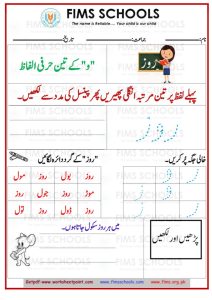 FIMS SCHOOLS
The name is Reliable.... Your child is our child
نام: جماعت: تاریخ:
"و" کے تین حرفی الفاظ
روز
پہلے لفظ پر تین مرتبہ انگلی پھیریں پھر پینسل کی مدد سے لکھیں۔
روز
خالی جگہ پُر کریں۔
"روز" کے گرد دائرہ لگائیں
روز بول روز مول
موز روز جول روز
روز ڈول روز تول
میں ہر روز سکول جاتا ہوں۔
پڑھیں اور لکھیں
Getpdf-www.worksheetpoint.com www.fimsschools.com www.fims.org.pk